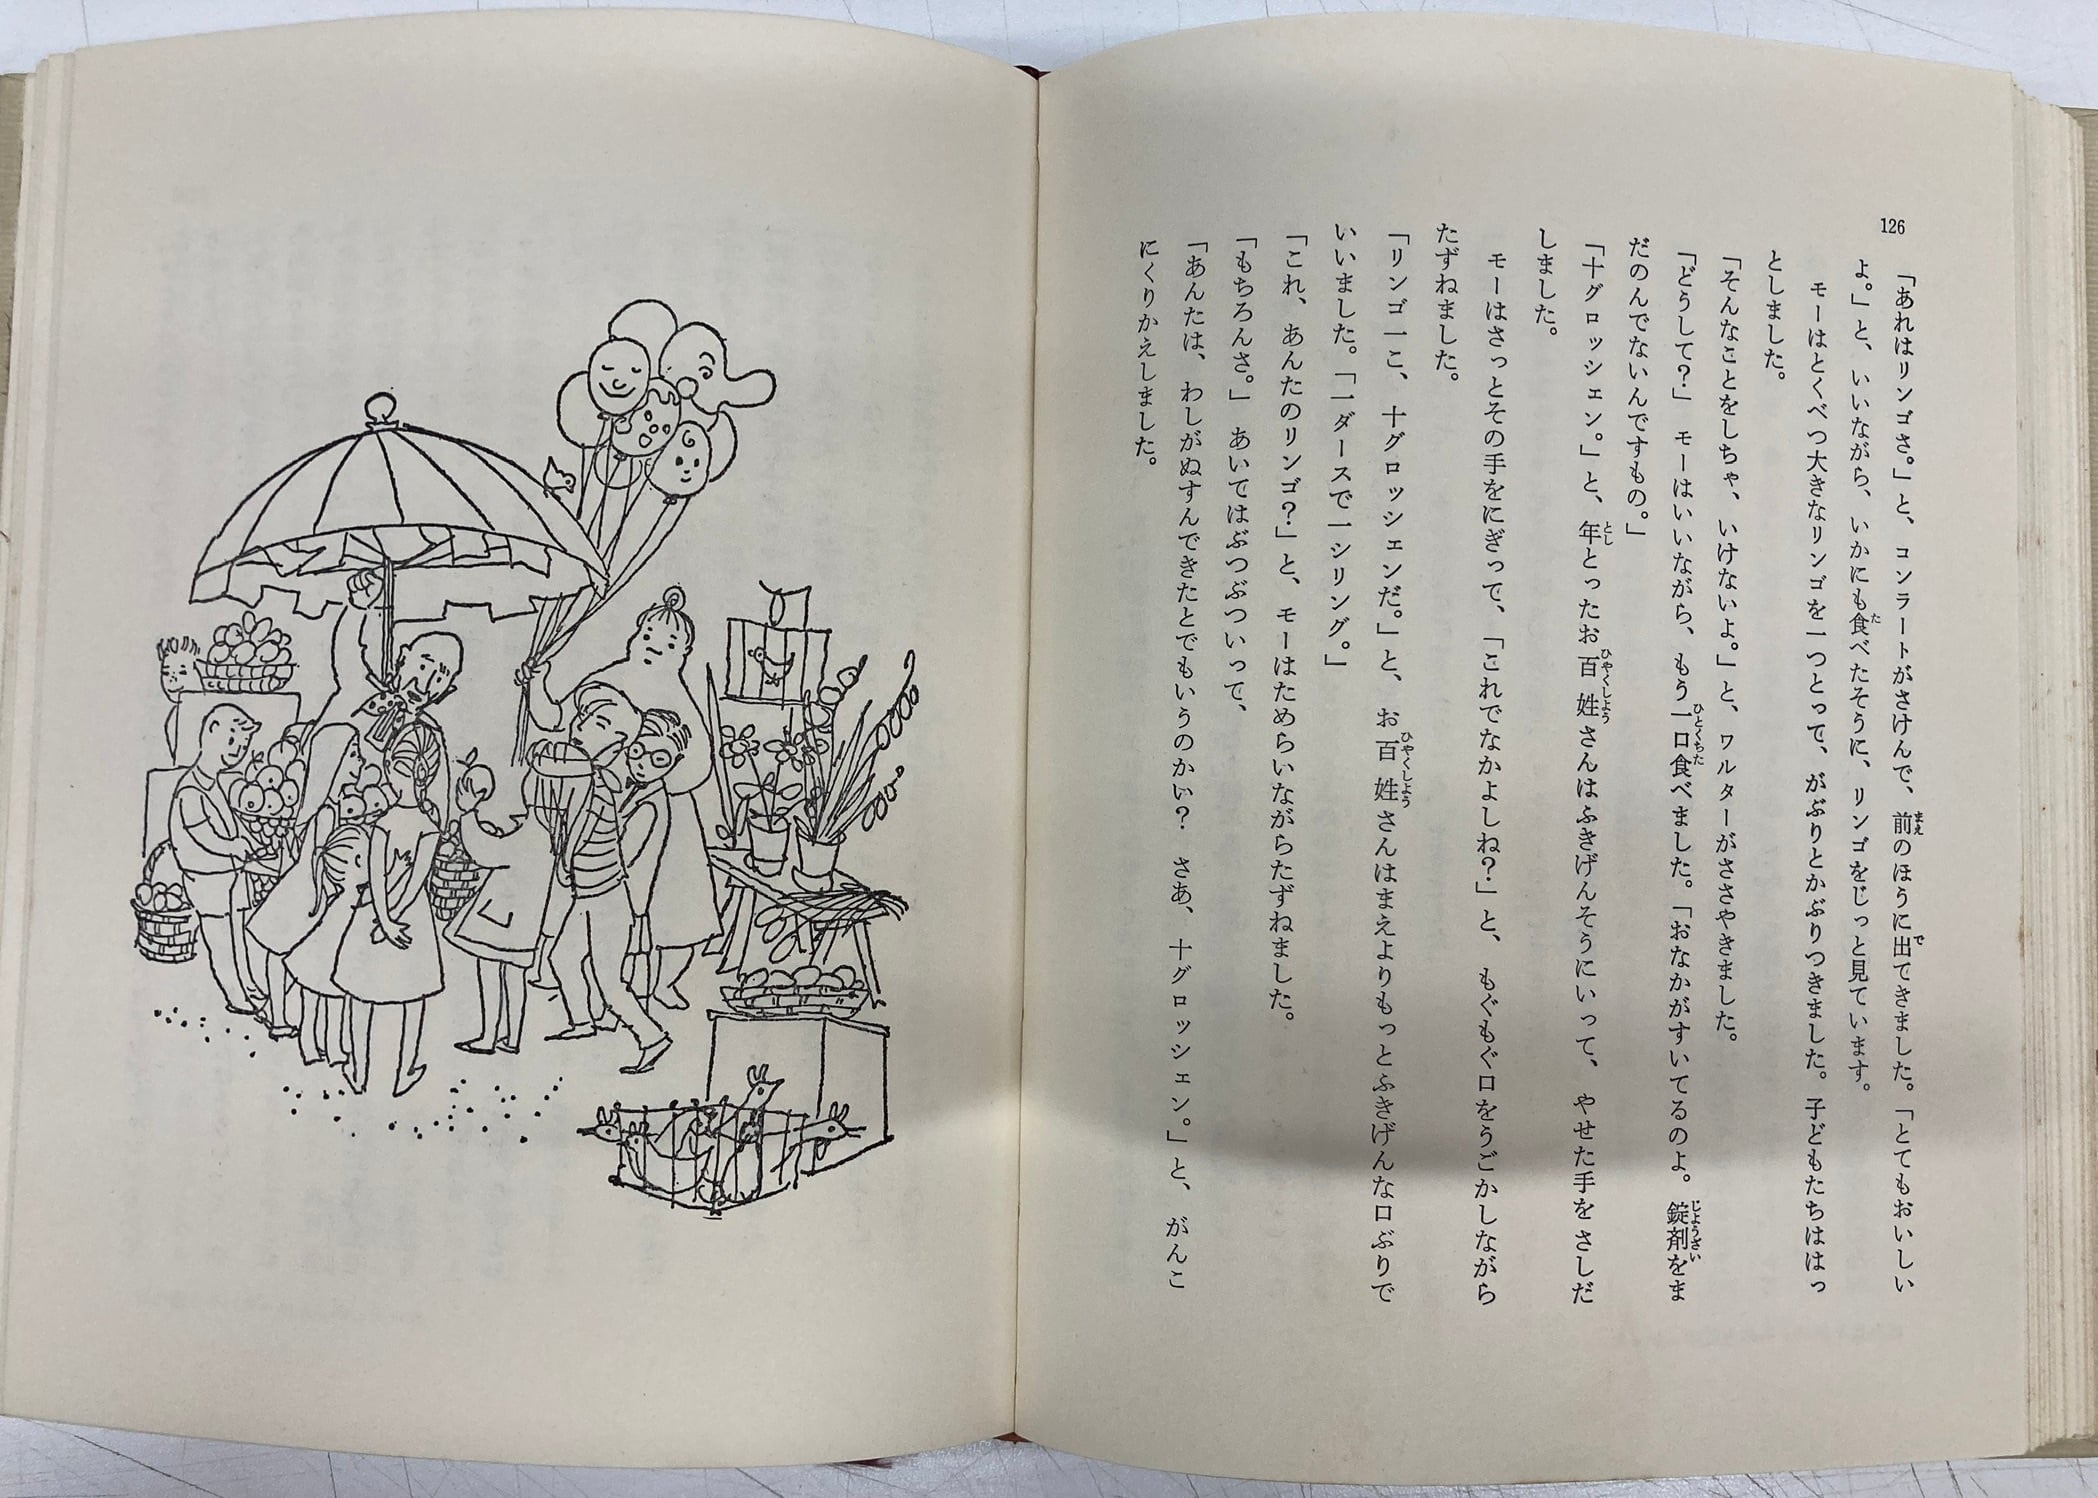 126
「あれはリンゴさ。」と、コンラートがさけんで、前のほうに出てきました。「とてもおいしい
よ。」と、いいながら、いかにも食べたそうに、リンゴをじっと見ています。
モーはとくべつ大きなリンゴを一つとって、がぶりとかぶりつきました。子どもたちははっ
としました。
「そんなことをしちゃ、いけないよ。」と、ワルターがささやきました。
「どうして？」モーはいいながら、もう一口食べました。「おなかがすいてるのよ。錠剤をま
だのんでないんですもの。」
「十グロッシェン。」と、年とったお百姓さんはふきげんそうにいって、やせた手をさしだ
しました。
モーはさっとその手をにぎって、「これでなかよしね？」と、もぐもぐ口をうごかしながら
たずねました。
「リンゴ一こ、十グロッシェンだ。」と、お百姓さんはまえよりもっとふきげんな口ぶりで
いいました。「一ダースで一シリング。」
「これ、あんたのリンゴ？」と、モーはためらいながらたずねました。
「もちろんさ。」あいてはぶつぶついって、
「あんたは、わしがぬすんできたとでもいうのかい？さあ、十グロッシェン。」と、がんこ
にくりかえしました。